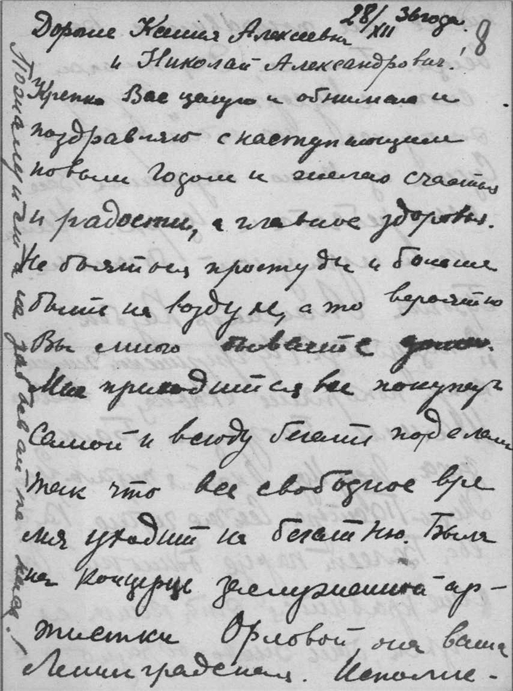 28/XII 36 года.
8
Дорогие Ксения Алексеевна
и Николай Александрович!
Крепко Вас целую и обнимаю и
поздравляю с наступающим
новым годом и желаю счастья
и радости, а главное здоровья.
Не бояться простуды и больше
быть на воздухе, а то вероятно
Вы много бываете дома.
Мне приходится все покупать
самой и всюду бегать по делам
так что все свободное вре
мя уходит на беготню. Была
на концерте заслуженной ар-
тистки Орловой, она ваша
Ленинградская. Исполне-
не забывайте меня!